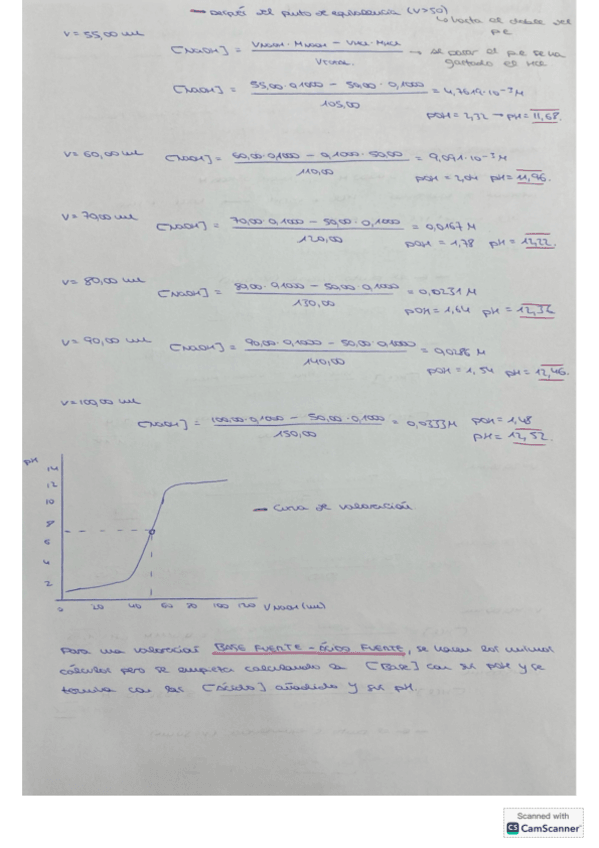 → Después del punto de equivalencia (V>50)
↳ hasta el doble del pe
V = 55,00 mL
[NaOH] = (V NaOH · M NaOH − V HCl · M HCl) / V TOTAL → al pasar el pe se ha gastado el HCl
[NaOH] = (55,00 · 0,1000 − 50,00 · 0,1000) / 105,00 = 4,7619·10⁻³ M
pOH = 2,32 → pH = 11,68.
V = 60,00 mL [NaOH] = (60,00 · 0,1000 − 0,1000 · 50,00) / 110,00 = 9,091·10⁻³ M
pOH = 2,04 pH = 11,96.
V = 70,00 mL [NaOH] = (70,00 · 0,1000 − 50,00 · 0,1000) / 120,00 = 0,0167 M
pOH = 1,78 pH = 12,22.
V = 80,00 mL [NaOH] = (80,00 · 0,1000 − 50,00 · 0,1000) / 130,00 = 0,0231 M
pOH = 1,64 pH = 12,36
V = 90,00 mL [NaOH] = (90,00 · 0,1000 − 50,00 · 0,1000) / 140,00 = 0,0286 M
pOH = 1,54 pH = 12,46.
V = 100,00 mL
[NaOH] = (100,00 · 0,1000 − 50,00 · 0,1000) / 150,00 = 0,0333 M pOH = 1,48
pH = 12,52.
pH
14
12
10
8
6
4
2
→ Curva de valoración
0 20 40 60 80 100 120 V NaOH (mL)
Para una valoración BASE FUERTE - ÁCIDO FUERTE, se hacen los mismos
cálculos pero se empieza calculando la [Base] con su pOH y se
termina con las [ácido] añadido y su pH.
Scanned with
CS CamScanner